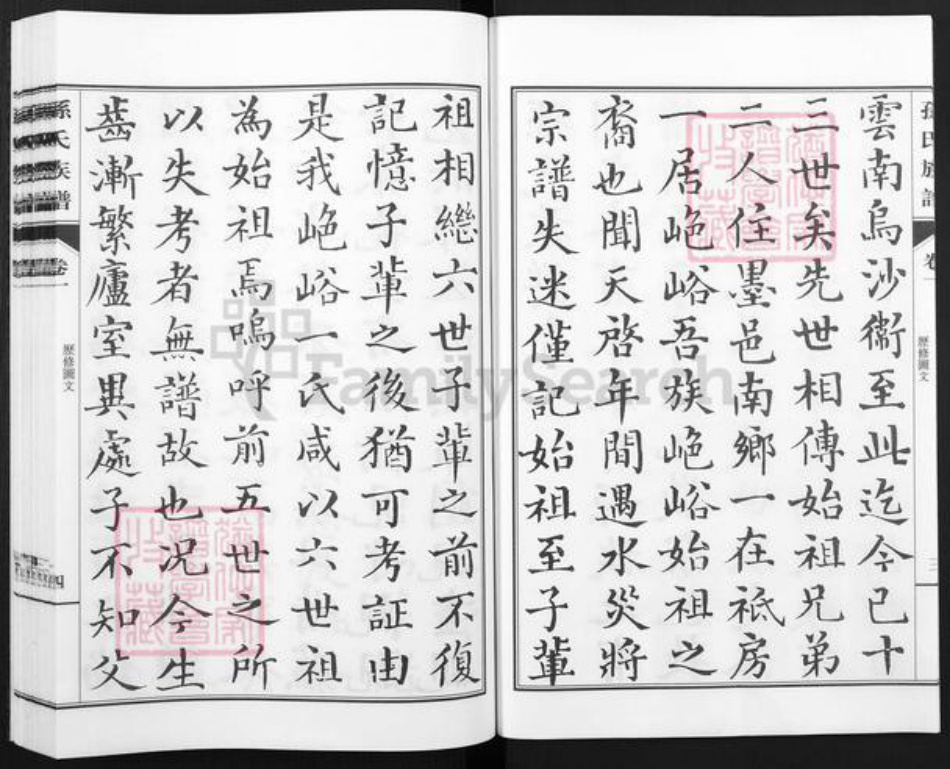 孫氏族譜
卷一
歷修圖文
三
雲南烏沙衞至此迄今已十
三世矣先世相傳始祖兄弟
二人住墨邑南鄉一在祗房
一居㟙峪吾族㟙峪始祖之
裔也聞天啓年間遇水災將
宗譜失迷僅記始祖至子輩
祖相繼六世子輩之前不復
記憶子輩之後猶可考証由
是我㟙峪一氏咸以六世祖
為始祖焉嗚呼前五世之所
以失考者無譜故也況今生
齒漸繁廬室異處子不知父
孫氏族譜
卷一
歷修圖文
四
FamilySearch